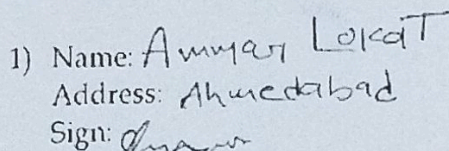 1) Name: Ammar Lokat
Address: Ahmedabad
Sign: